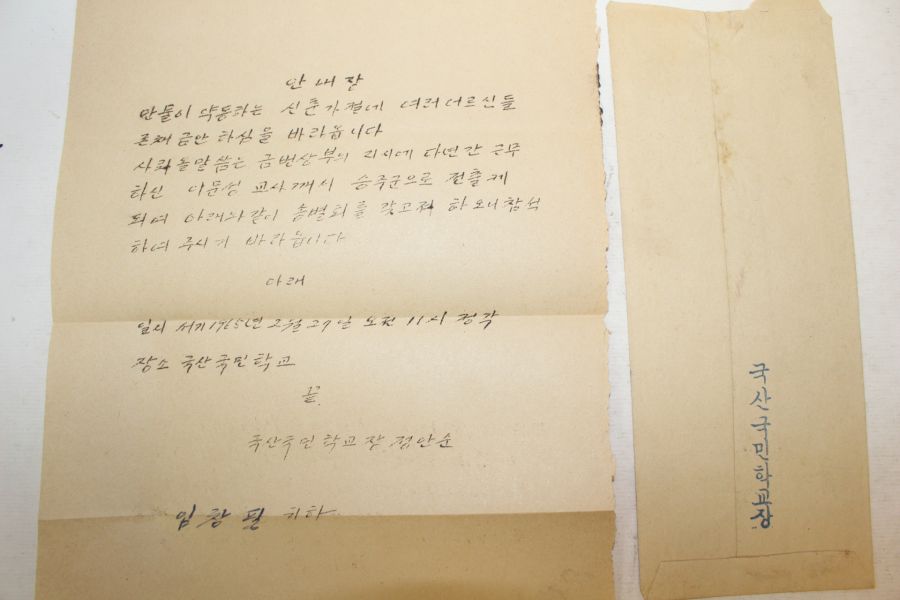 안내장
만물이 약동하는 신춘가절에 여러어르신들
존체금안 하심을 바라옵니다
사뢰올말씀은 금번상부의 지시에 다년간 근무
하신 이문성 교사께서 승주군으로 전출케
되여 아래와같이 송별회를 갖고저 하오니참석
하여 주시기 바라옵니다
아래
일시 서기1965년 2월 27일 오전 11시 정각
장소 국산국민학교
끝.
국산국민학교장 정안순
임창필 귀하
국산국민학교장